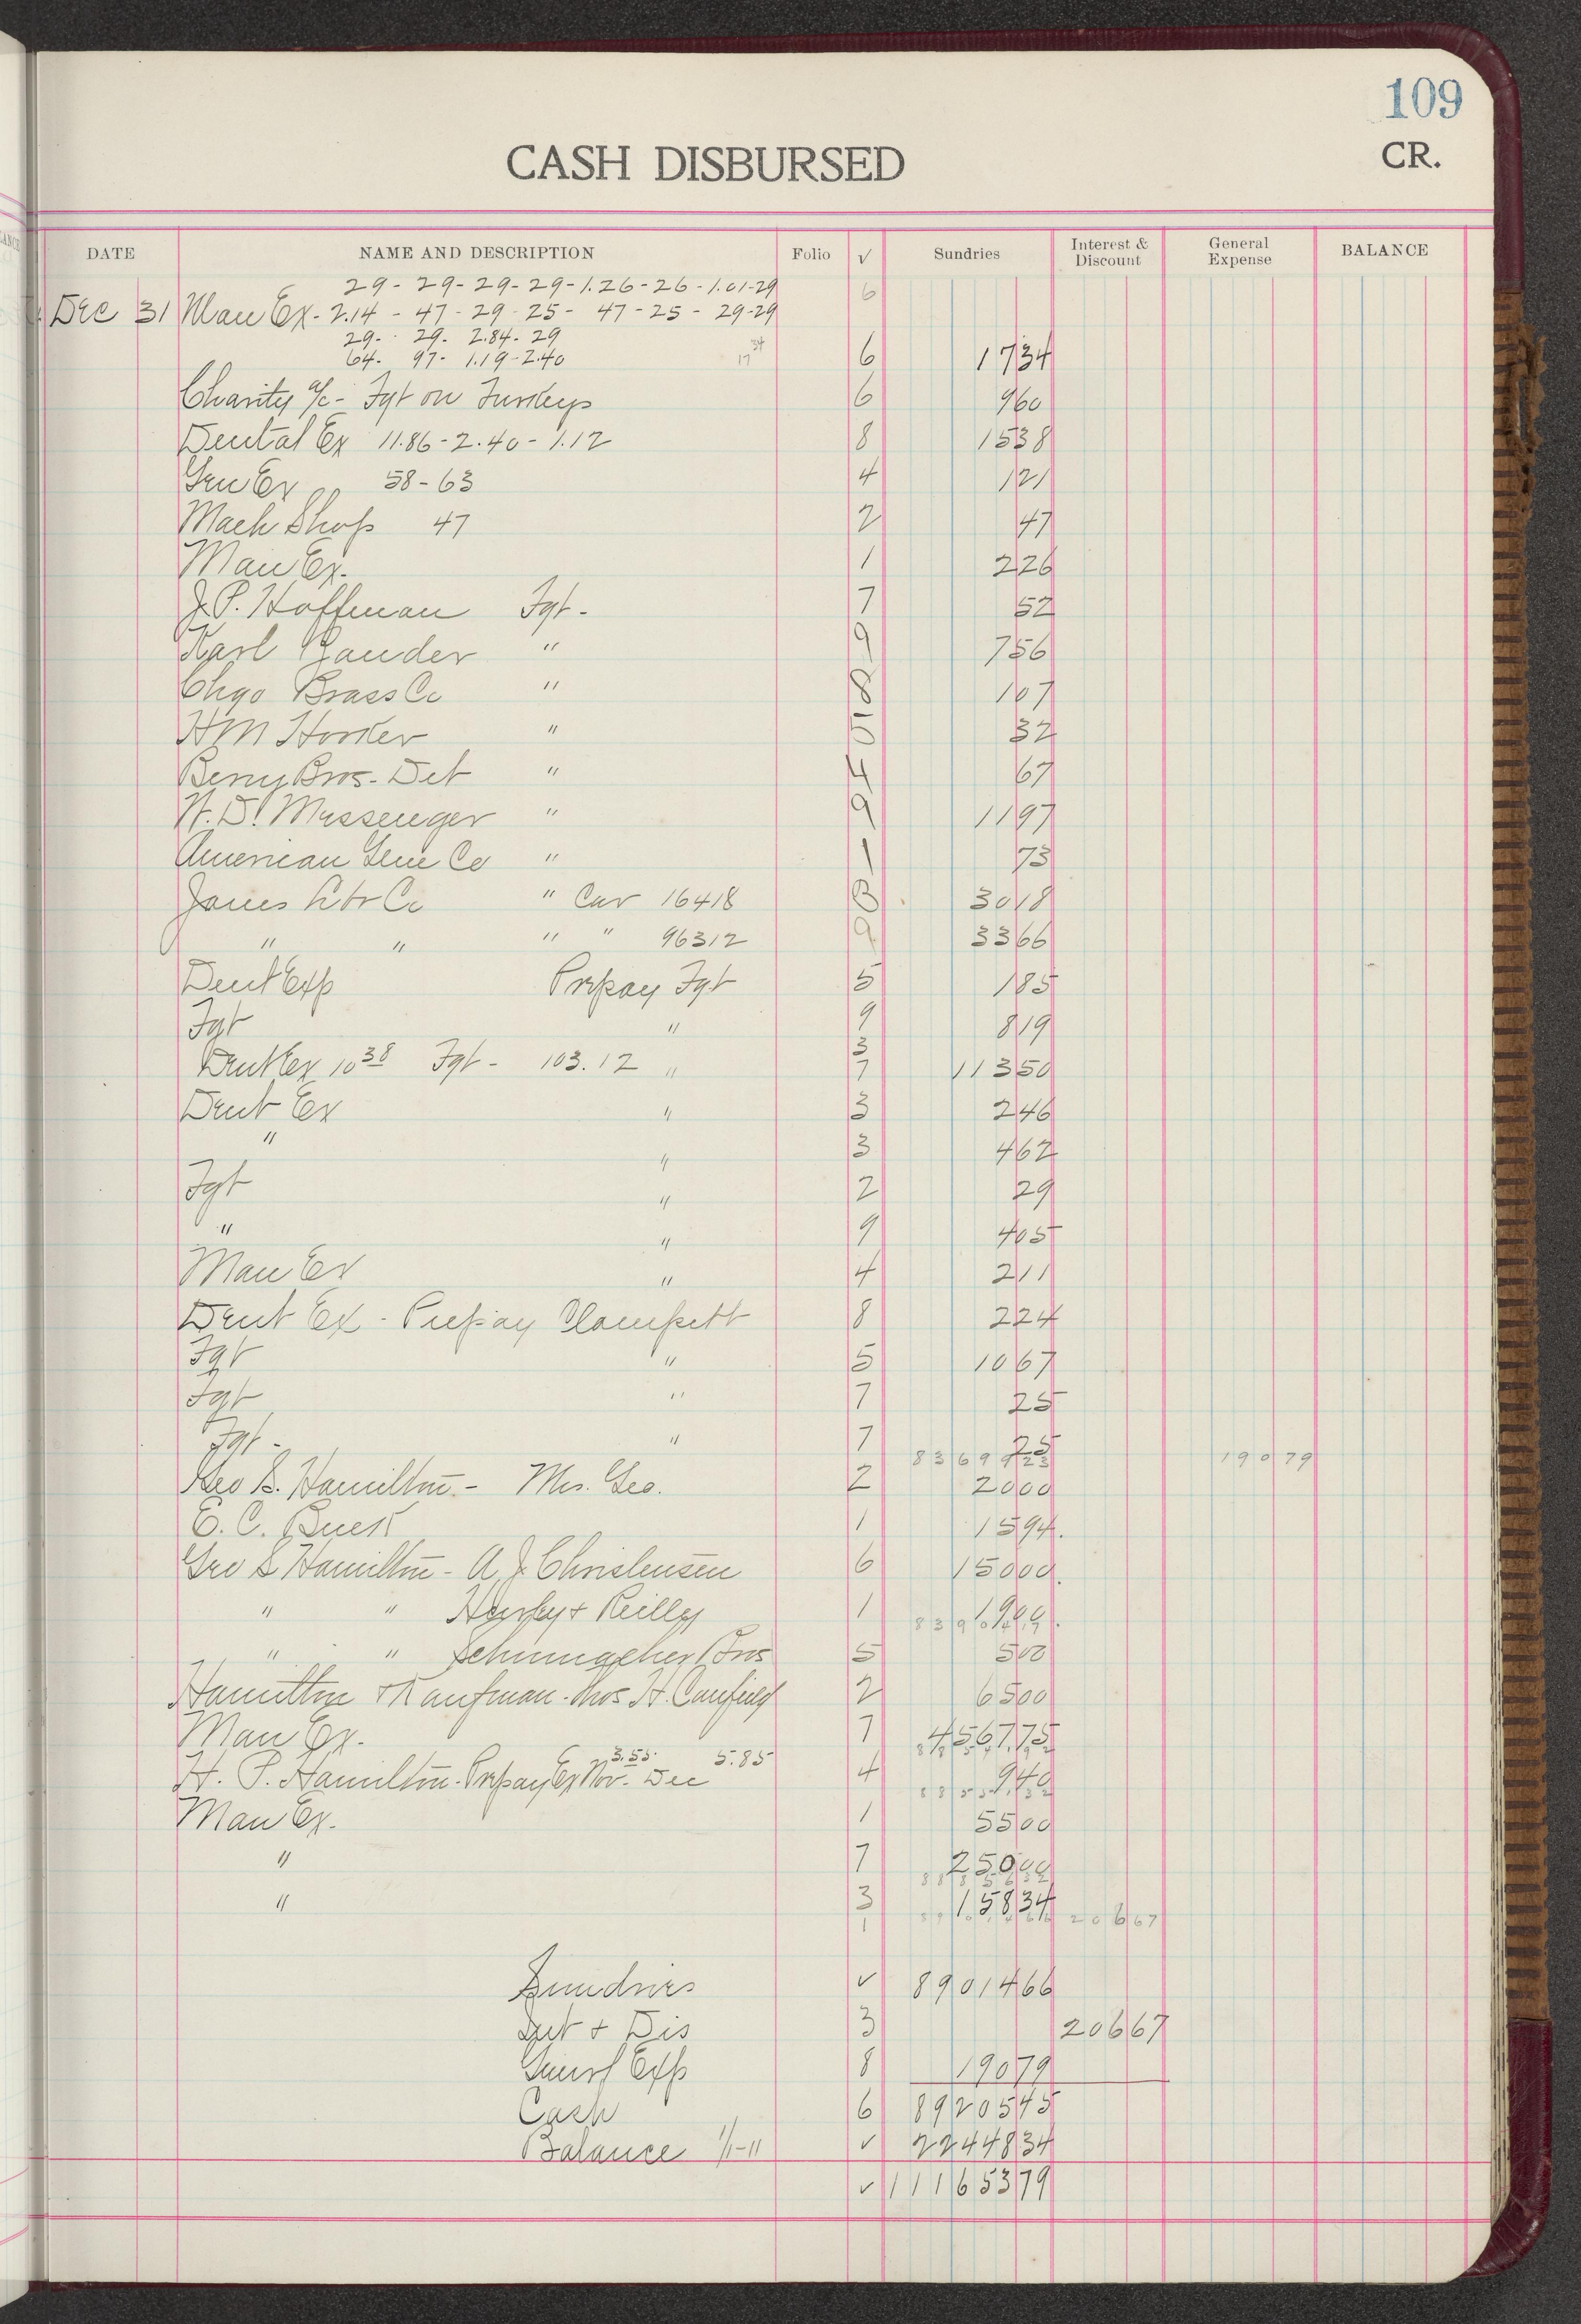 109
CASH DISBURSED
CR.
DATE NAME AND DESCRIPTION Folio √ Sundries Interest & Discount General Expense BALANCE
29 - 29 - 29 - 29 - 1.26 - 26 - 1.01 - 29 6
Dec 31 Man Ex - 2.14 - 47 - 29 - 25 - 47 - 25 - 29 - 29
29 - 29 - 2.84 - 29
64 - 97 - 1.19 - 2.40 17 34 6 1734
Charity a/c - Fgt on Turkeys 6 960
Dental Ex 11.86 - 2.40 - 1.12 8 1538
Gen Ex 58 - 63 4 121
Mach Shop 47 2 47
Man Ex. 1 226
J. P. Hoffman Fgt - 7 52
Karl Zander " 9 756
Chgo Brass Co " 8 107
H M Hooker " 5 32
Berry Bros. Det " 4 67
W. D. Messenger " 9 1197
American Glue Co " 1 73
Jones Lbr Co " Car 16418 3018
" " " " 96312 9 3366
Dent Exp Prepay Fgt 5 185
Fgt " 9 819
Dent Ex 10 38 Fgt - 103.12 " 3 7 11350
Dent Ex " 3 246
" " 3 462
Fgt " 2 29
" " 9 405
Man Ex " 4 211
Dent Ex - Prepay Clampett 8 224
Fgt " 5 1067
Fgt " 7 25
Fgt - " 7 25
19079
Geo S. Hamilton - Mrs. Geo. 2 2000
E. C. Buek 1 1594.
Geo S Hamilton - A. J. Christensen 6 15000.
" " Hurley & Reilly 1 1900.
" " Schumacher Bros 5 500
Hamilton & Kaufman - Thos H. Canfield 2 6500
Man Ex. 7 456775
H. P. Hamilton - Prepay Ex Nov. 3.55 Dec 5.85 4 940
Man Ex. 1 5500
" 7 25000
" 3 15834
1 20667
Sundries √ 8901466
Int & Dis 3 20667
Genrl Exp 8 19079
Cash 6 8920545
Balance 1/1-11 √ 2244834
√ 11165379